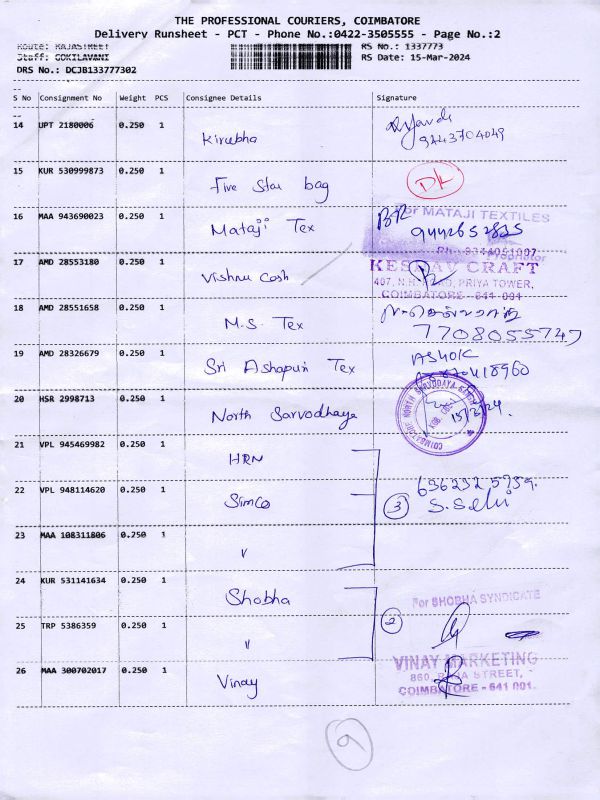 THE PROFESSIONAL COURIERS, COIMBATORE
Delivery Runsheet - PCT - Phone No.:0422-3505555 - Page No.:2
Route: RAJASTREET RS No.: 1337773
Staff: GOKILAVANI RS Date: 15-Mar-2024
DRS No.: DCJB133777302
--
S No Consignment No Weight PCS Consignee Details Signature
--
14 UPT 2180006 0.250 1 Kirubha
9443704049
15 KUR 530999873 0.250 1 Five Star bag
16 MAA 943690023 0.250 1 Mataji Tex
For MATAJI TEXTILES
9442652835
Proprietor
17 AMD 28553180 0.250 1 Vishnu Cash
KESHAV CRAFT
PRIYA TOWER,
COIMBATORE - 641 001
18 AMD 28551658 0.250 1 M.S. Tex
7708055747
19 AMD 28326679 0.250 1 Sri Ashapuri Tex
ASHOK
20 HSR 2998713 0.250 1 North Sarvodhaya
COIMBATORE NORTH SARVODAYA
15/3/24.
21 VPL 945469982 0.250 1 HRN
22 VPL 948114620 0.250 1 Simco
3
S. Selvi
23 MAA 108311806 0.250 1 "
24 KUR 531141634 0.250 1 Shobha
For SHOBHA SYNDICATE
25 TRP 5386359 0.250 1 "
2
26 MAA 300702017 0.250 1 Vinay
VINAY MARKETING
860, RAJA STREET,
COIMBATORE - 641 001.
9